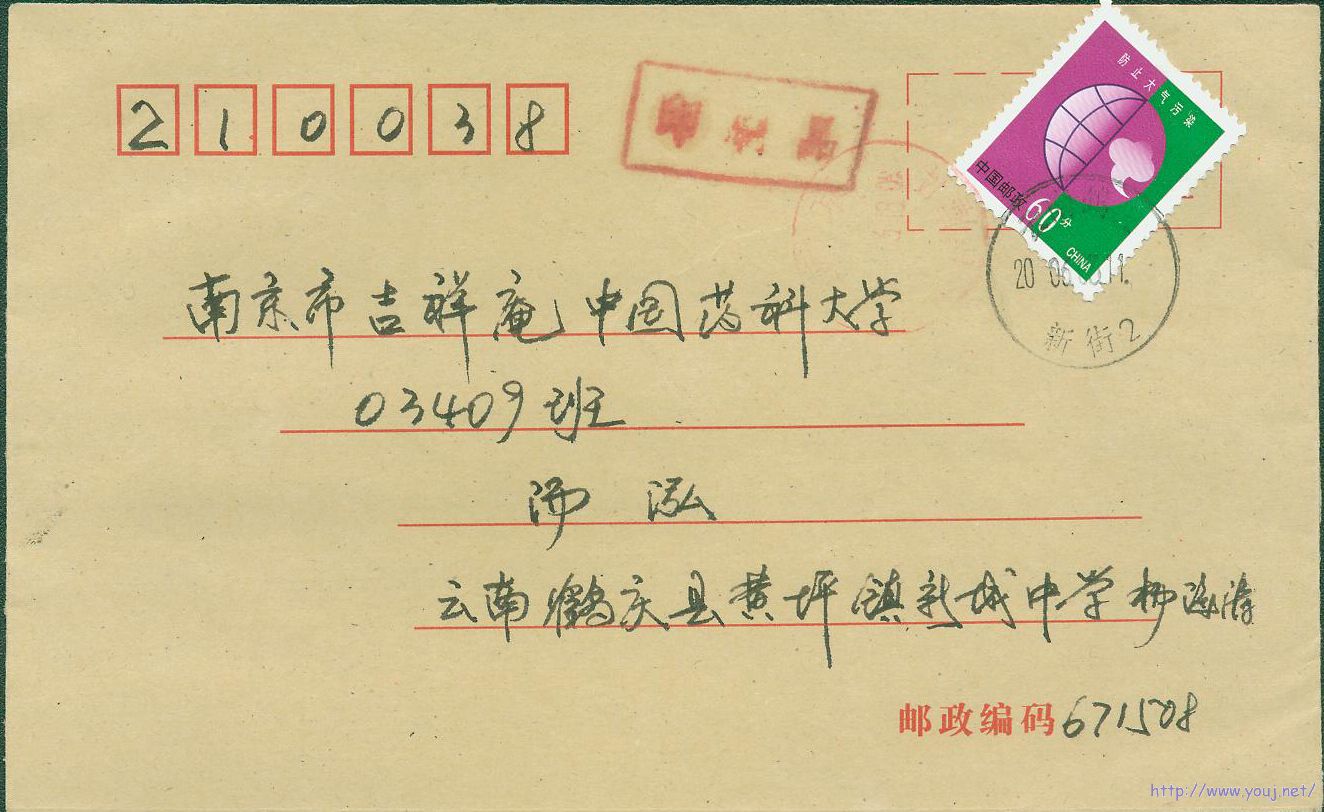 210038
防止大气污染
中国邮政
60分
CHINA
新街2
南京市吉祥庵中国药科大学
03409班
汤 泓
云南鹤庆县黄坪镇新城中学
邮政编码671508
http://www.youj.net/